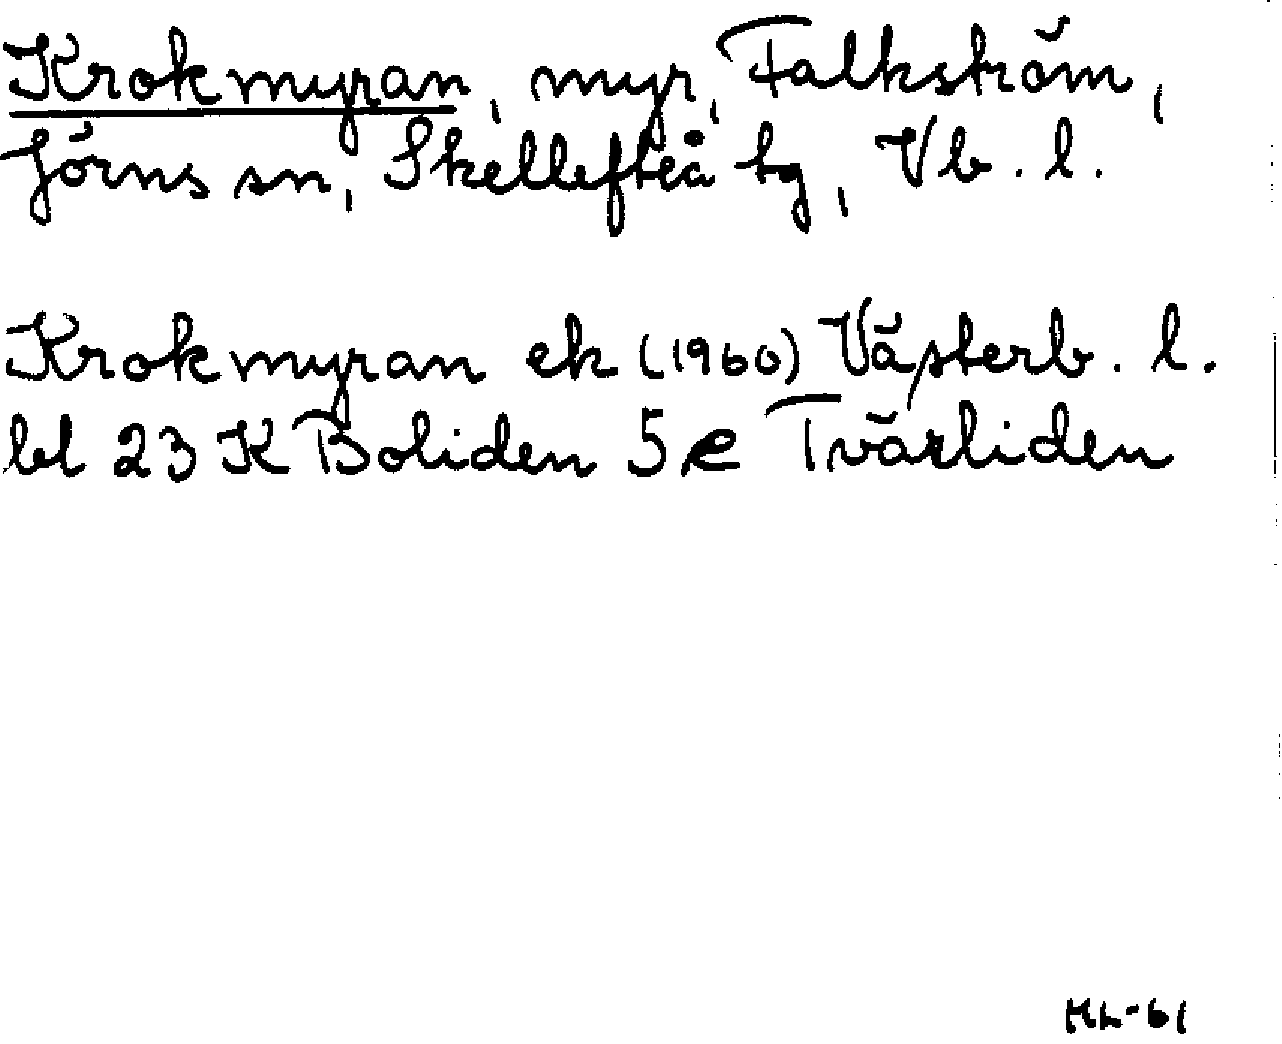 Krokmyran, myr, Falkström,
Jörns sn, Skellefteå tg, Vb. l.
Krokmyran ek (1960) Västerb. l.
bl 23 K Boliden 5 e Tvärliden
HL-61